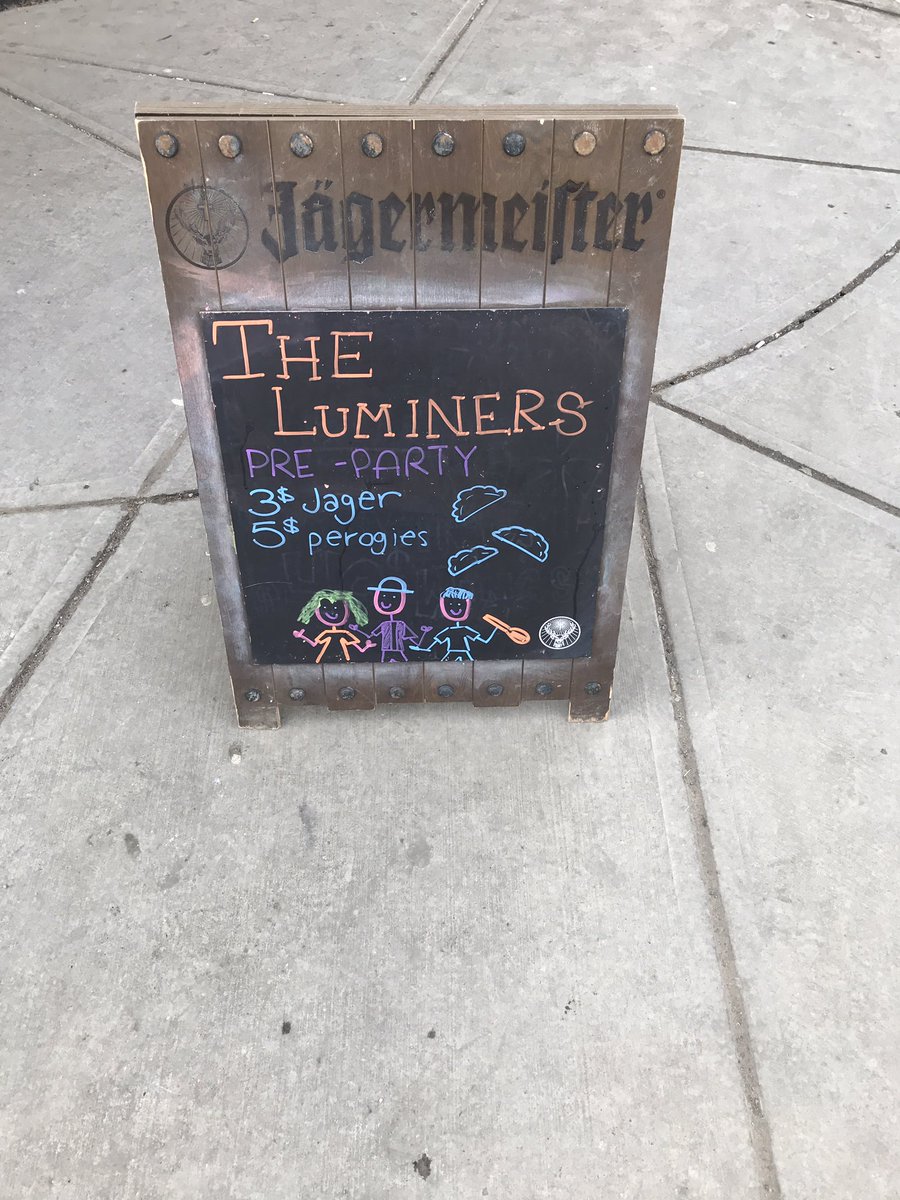 Jägermeiſter®
THE
LUMINERS
PRE-PARTY
3$ Jager
5$ perogies